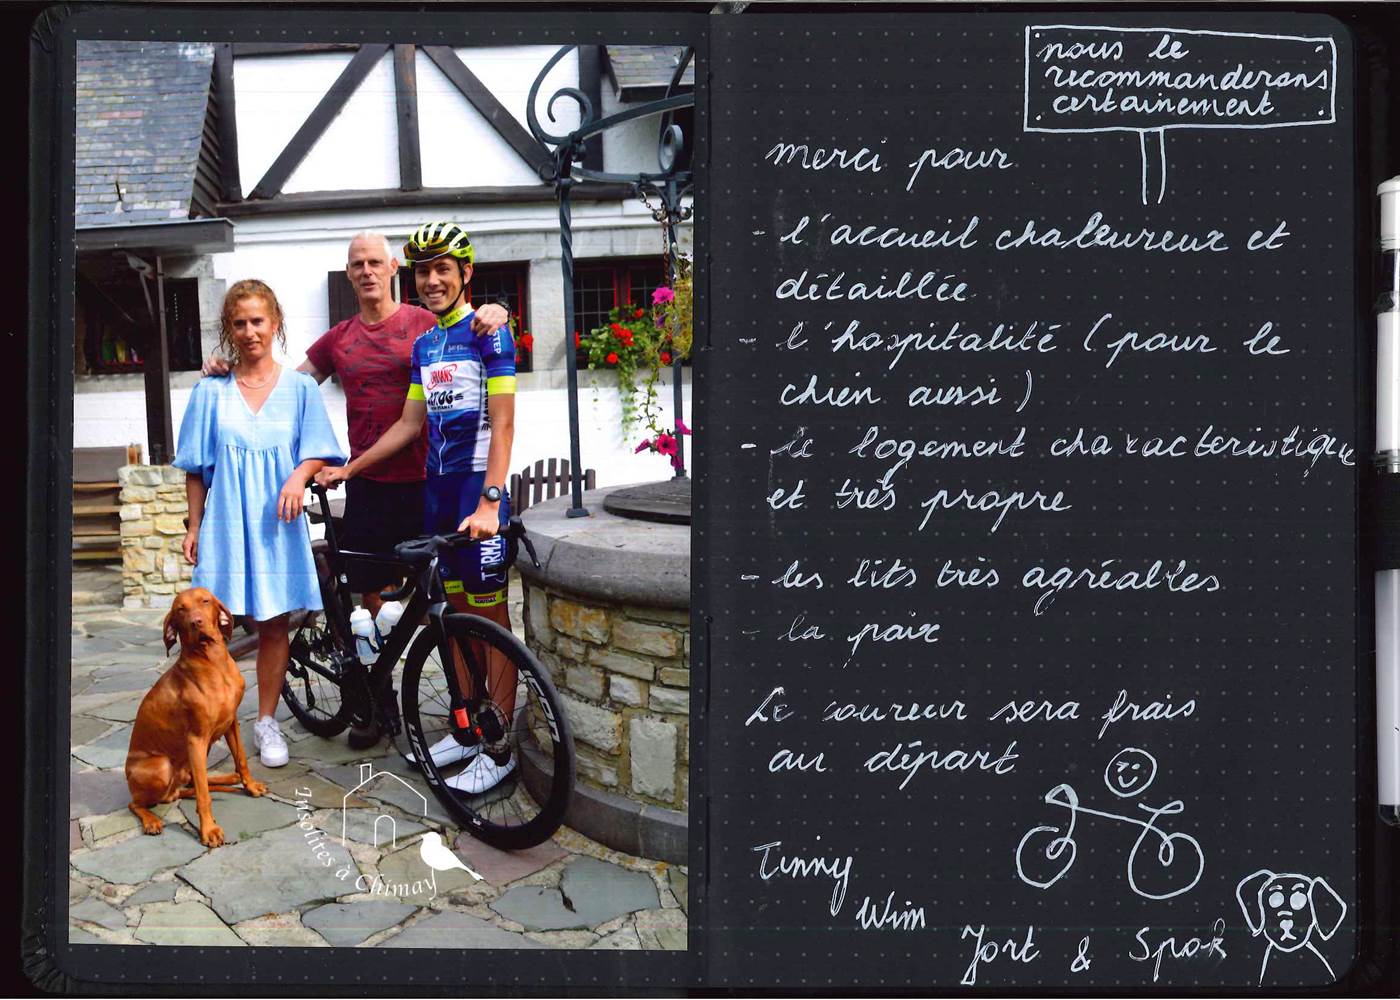 nous le
recommanderons
certainement
merci pour
- l'accueil chaleureux et
détaillée
- l'hospitalité (pour le
chien aussi)
- le logement characteristique
et très propre
- les lits très agréables
- la paix
Le coureur sera frais
au départ
Tinny
Wim
Jort & Spok
Insolites à Chimay